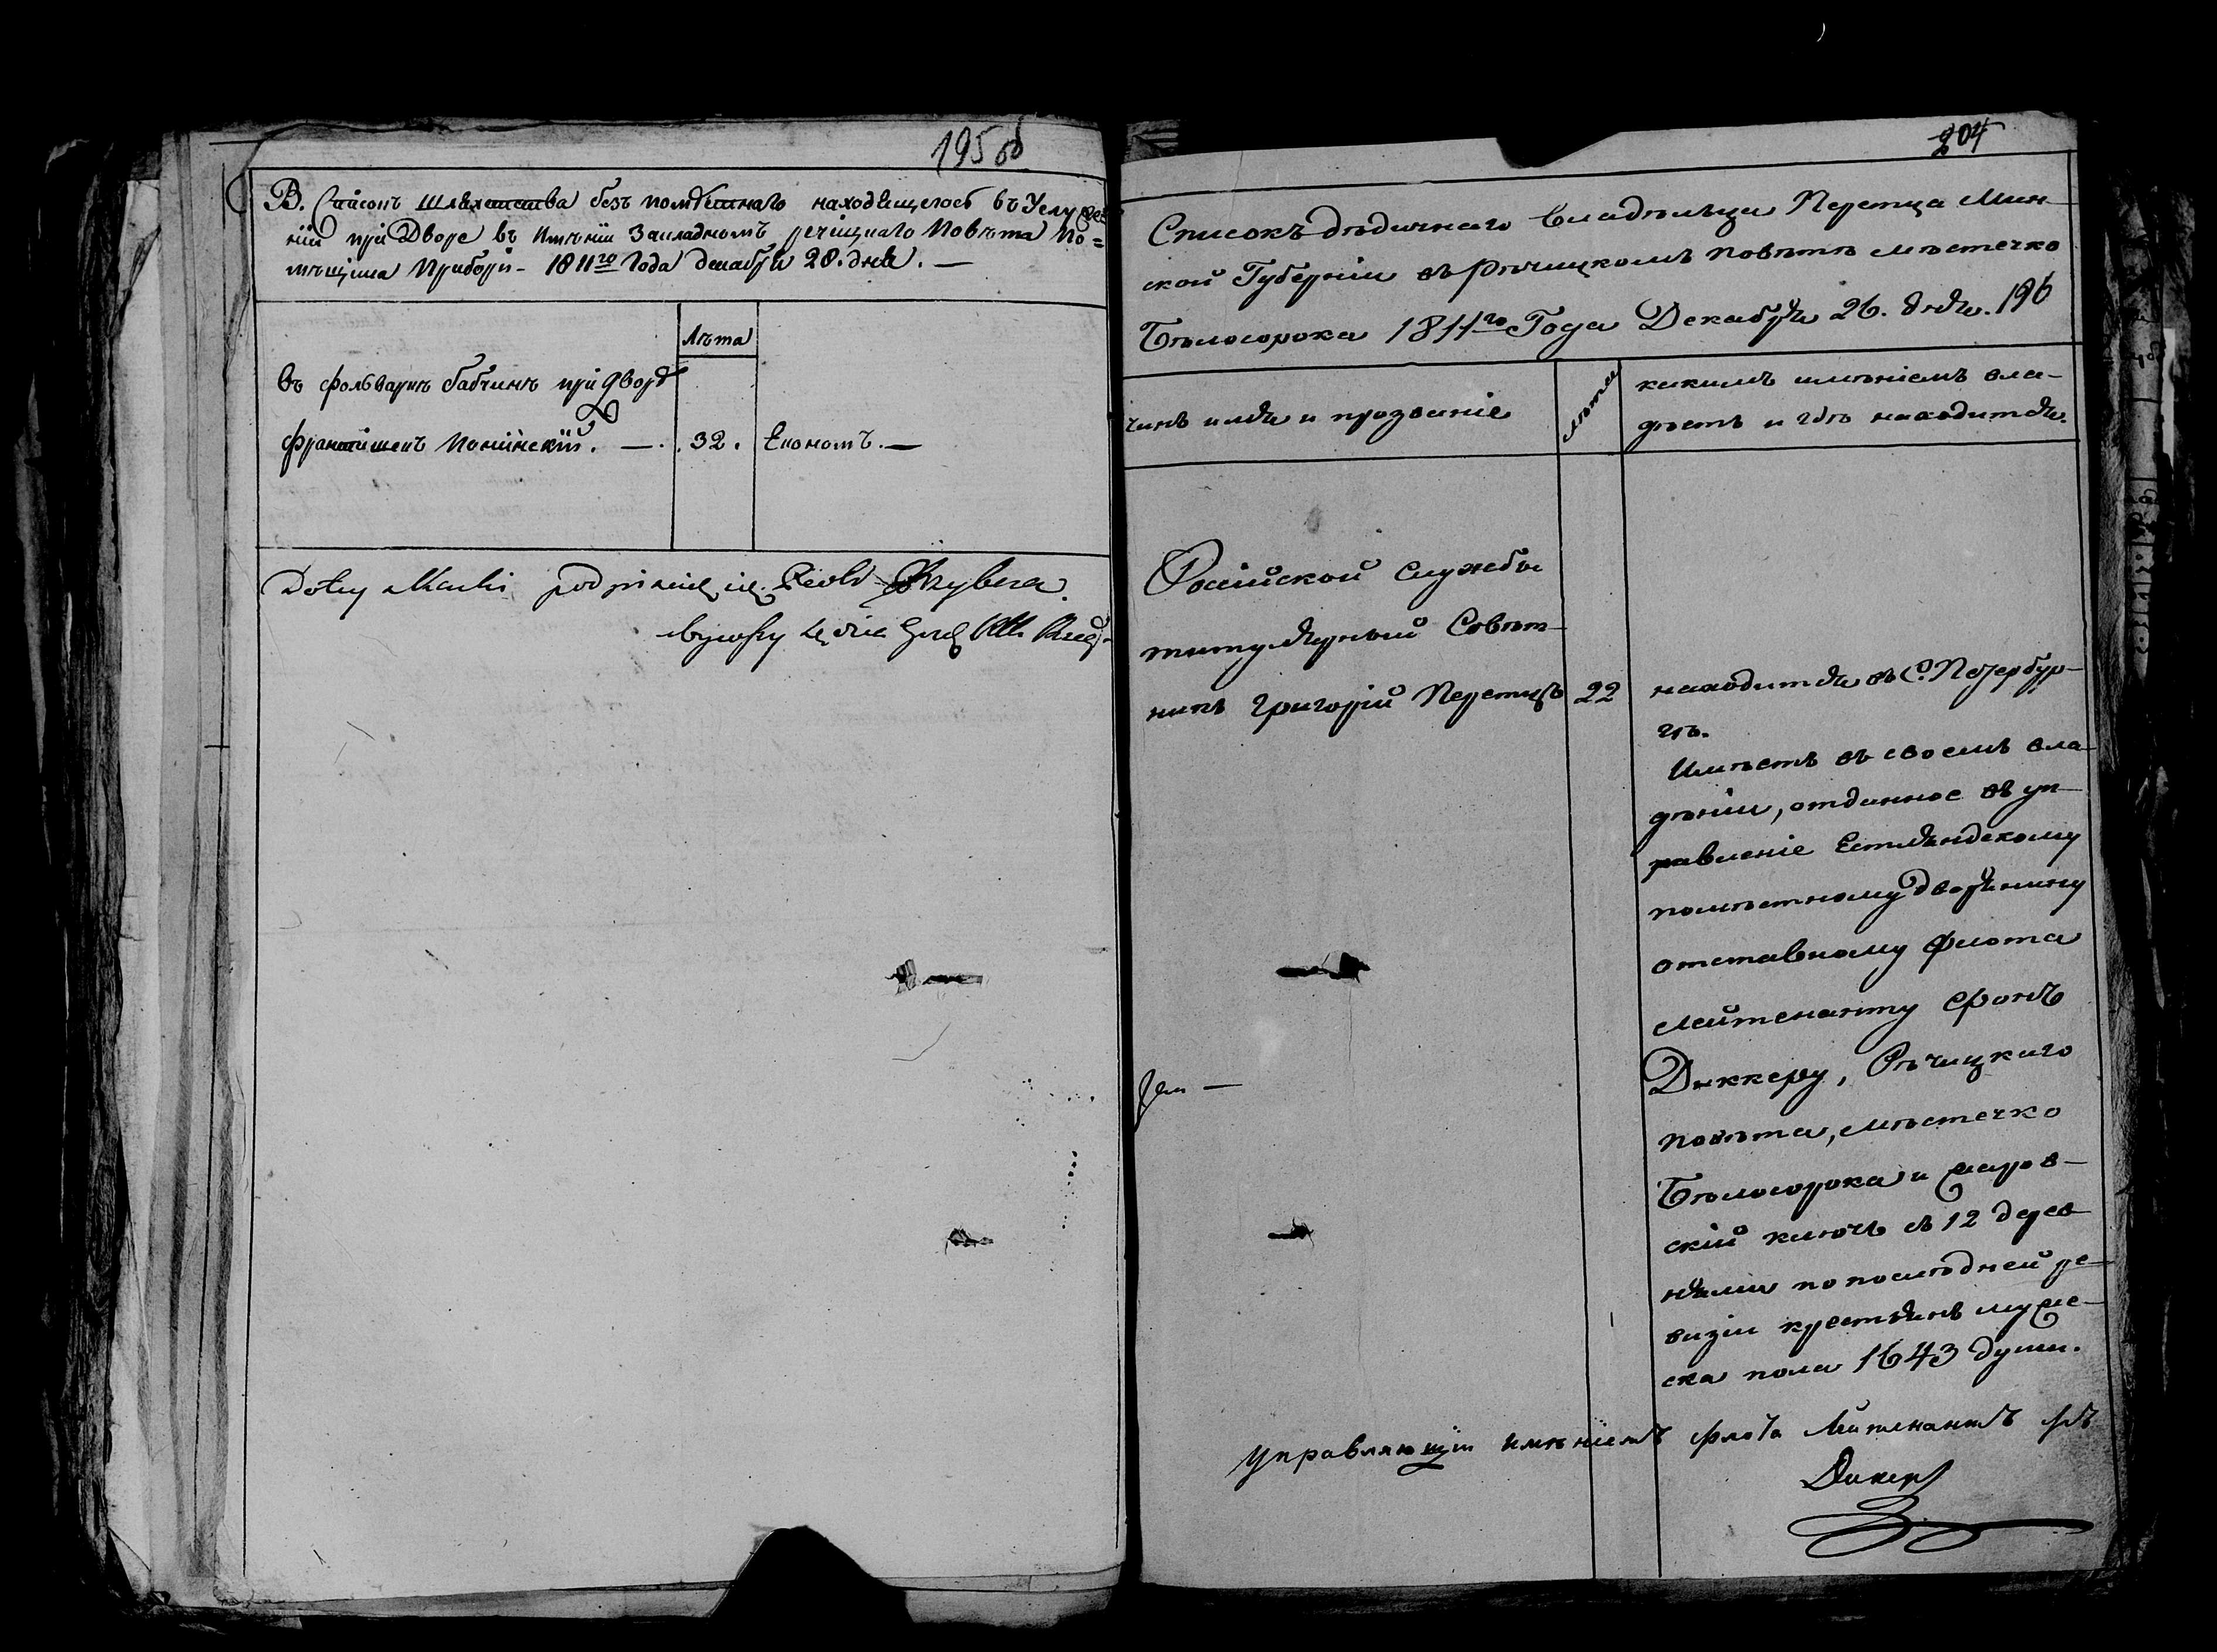 195 об
В. Список Шляхетства безъ помѣстнаго находящегося въ Услуже
нїи при Дворѣ въ Имѣнїи Закладномъ речицкаго Повѣта По=
мѣщика Прибори - 1811го Года декабря 28. дня. —
Лѣта
въ фольварке бабчинѣ при дворѣ
францишекъ Понинскїй. — . 32. Економъ. —
Do tey
204
Списокъ дѣдичнаго владѣльца Перетца Мин-
ской Губернїи въ Рѣчицкомъ повѣтѣ мѣстечко
Бѣлосорока 1811го Года Декабря 26. дня. 196
чинъ имя и прозванїе
лѣта
какимъ имѣнїемъ вла-
дѣетъ и гдѣ находится.
Россїйской службы
титулярный Совѣт-
никъ Григорїй Перетцъ 22
находится въ С. Петербур-
гѣ.
Имѣетъ въ своемъ вла-
дѣнїи, отданное въ уп-
равленїе Естляндскому
помѣстному дворянину
отставному флота
лейтенанту фонъ
Деккеру, Рѣчицкаго
повѣта, мѣстечко
Бѣлосорока и
скїй ключь съ 12 дерев
нями по последней ре-
визїи крестьянъ муже-
ска пола 1643 души.
Управляющїй имѣнїемъ флота Лейтенантъ фъ
Дикеръ